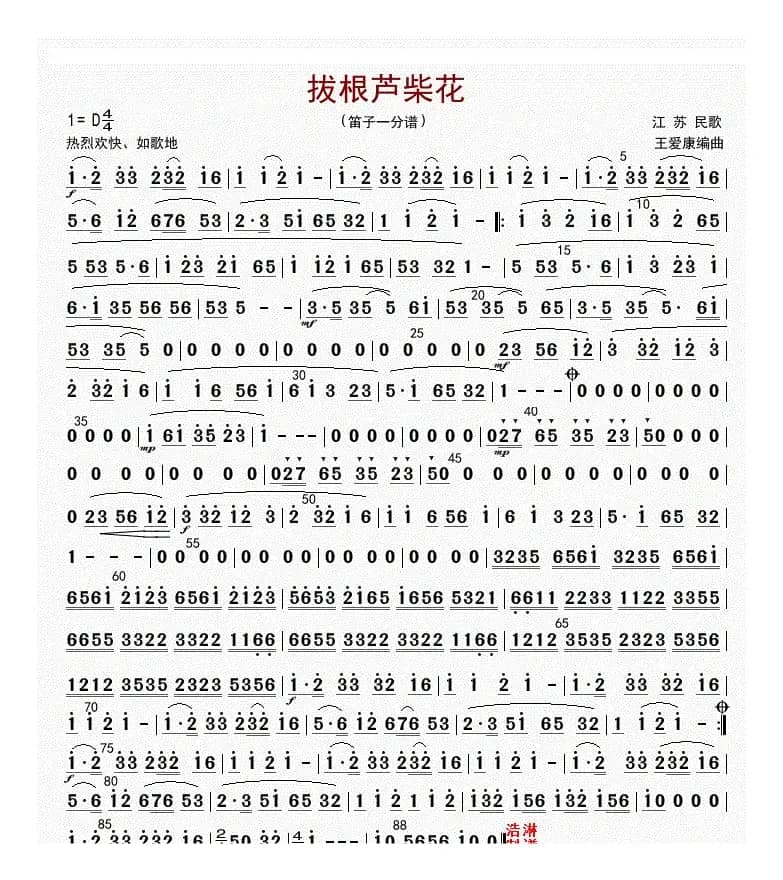 拔根芦柴花
1= D 4/4
(笛子一分谱)
江 苏 民歌
热烈欢快、如歌地
王爱康编曲
i·2 33 232 i6 | i i 2 i - | i·2 33 232 i6 | i i 2 i - | i·2 33 232 i6
5·6 i2 676 53 | 2·3 5i 65 32 | 1 i 2 i - |: i 3 2 i6 | i 3 2 65 |
5 53 5·6 | i 23 2i 65 | i i2 i 65 | 53 32 1 - | 5 53 5·6 | i 3 23 i |
6·i 35 56 56 | 53 5 - - | 3·5 35 5 6i | 53 35 5 65 | 3·5 35 5· 6i |
53 35 5 0 | 0 0 0 0 | 0 0 0 0 | 0 0 0 0 | 0 23 56 i2 | 3 32 i2 3 |
2 32 i 6 | i i6 56 i | 6 i 3 23 | 5·i 65 32 | 1 - - - | 0 0 0 0 | 0 0 0 0 |
0 0 0 0 | i 6i 35 23 | i - - - | 0 0 0 0 | 0 0 0 0 | 027 65 35 23 | 50 0 0 0 |
0 0 0 0 | 0 0 0 0 | 027 65 35 23 | 50 0 0 0 | 0 0 0 0 | 0 0 0 0 |
0 23 56 i2 | 3 32 i2 3 | 2 32 i 6 | i i 6 56 i | 6 i 3 23 | 5· i 65 32 |
1 - - - | 0 0 0 0 | 0 0 0 0 | 0 0 0 0 | 0 0 0 0 | 3235 656i 3235 656i |
656i 2i23 656i 2i23 | 5653 2i65 i656 5321 | 6611 2233 1122 3355 |
6655 3322 3322 1166 | 6655 3322 3322 1166 | 1212 3535 2323 5356 |
1212 3535 2323 5356 | i·2 33 32 i6 | i i 2 i - | i·2 33 32 i6 |
i i 2 i - | i·2 33 232 i6 | 5·6 i2 676 53 | 2·3 5i 65 32 | 1 i 2 i - :|
i·2 33 232 i6 | i i 2 i - | i·2 33 232 i6 | i i 2 i - | i·2 33 232 i6 |
5·6 i2 676 53 | 2·3 5i 65 32 | 1 i 2 i - | i32 i56 i32 i56 | i0 0 0 0 |
i·2 33 232 i6 | 2/4 50 232 | 4/4 i - - - | i0 5656 i0 0
浩淋